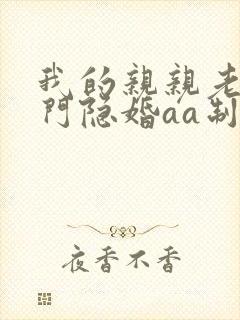 我的親親老
門隐婚aa制
夜香不香